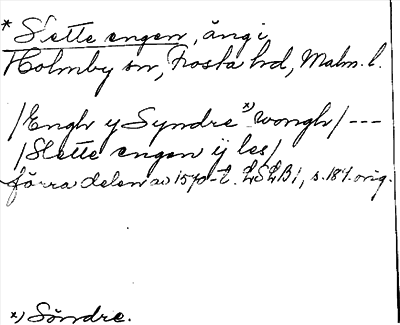 * Slette engen, äng i
Holmby sn, Frosta hd, Malm. l.
/Engh y Syndre *) wongh/ ---
/Slette engen ij les/
förra delen av 1570-t. LSLB 1, s. 184. orig.
*) Söndre.